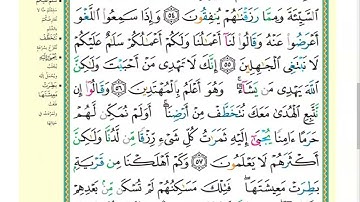 ٱلسَّيِّئَةَ وَمِمَّا رَزَقْنَٰهُمْ يُنفِقُونَ ٥٤ وَإِذَا سَمِعُوا۟ ٱللَّغْوَ
أَعْرَضُوا۟ عَنْهُ وَقَالُوا۟ لَنَآ أَعْمَٰلُنَا وَلَكُمْ أَعْمَٰلُكُمْ سَلَٰمٌ عَلَيْكُمْ
لَا نَبْتَغِى ٱلْجَٰهِلِينَ ٥٥ إِنَّكَ لَا تَهْدِى مَنْ أَحْبَبْتَ وَلَٰكِنَّ
ٱللَّهَ يَهْدِى مَن يَشَآءُ ۚ وَهُوَ أَعْلَمُ بِٱلْمُهْتَدِينَ ٥٦ وَقَالُوٓا۟ إِن
نَّتَّبِعِ ٱلْهُدَىٰ مَعَكَ نُتَخَطَّفْ مِنْ أَرْضِنَآ ۚ أَوَلَمْ نُمَكِّن لَّهُمْ
حَرَمًا ءَامِنًا يُجْبَىٰٓ إِلَيْهِ ثَمَرَٰتُ كُلِّ شَىْءٍ رِّزْقًا مِّن لَّدُنَّا وَلَٰكِنَّ
أَكْثَرَهُمْ لَا يَعْلَمُونَ ٥٧ وَكَمْ أَهْلَكْنَا مِن قَرْيَةٍۭ
بَطِرَتْ مَعِيشَتَهَا ۖ فَتِلْكَ مَسَٰكِنُهُمْ لَمْ تُسْكَن مِّنۢ بَعْدِهِمْ